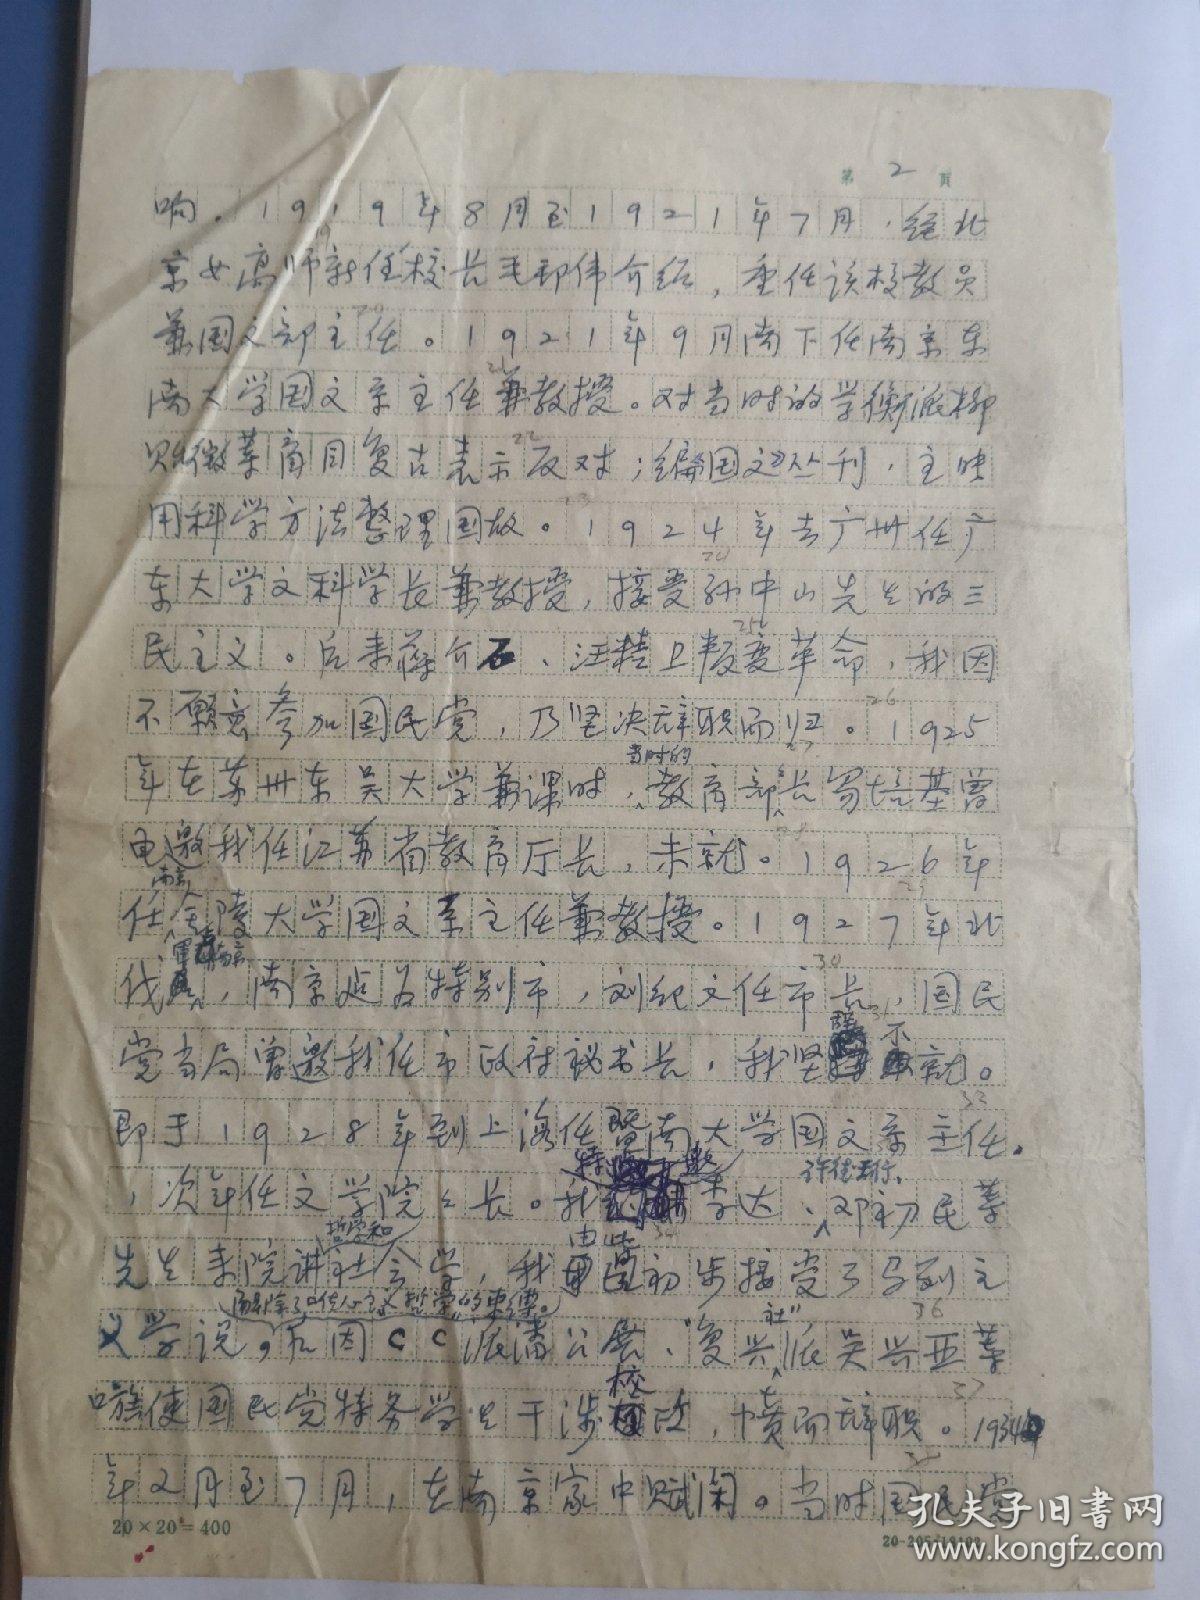 第 2 页
响。1919年8月至1921年7月，经北
京女高师新任校长毛邦伟介绍，重任该校教员
兼国文部主任。1921年9月南下任南京东
南大学国文系主任兼教授。对当时的学衡派柳
贻徵等商目复古表示反对；编国文丛刊，主张
用科学方法整理国故。1924年去广州任广
东大学文科学长兼教授，接受孙中山先生的三
民主义。后来蒋介石、汪精卫叛变革命，我因
不愿意参加国民党，乃坚决辞职而归。1925
当时的
年在苏州东吴大学兼课时，教育部长易培基曾
电邀我任江苏省教育厅长，未就。1926年
南京
任金陵大学国文系主任兼教授。1927年北
伐军 南京，南京改为特别市，刘纪文任市长，国民
党当局曾邀我任市政府秘书长，我坚辞不就。
即于1928年到上海任暨南大学国文系主任。
特邀 许德珩、
，次年任文学院院长。我 李达、邓初民等
哲学和 由此
先生来院讲社会学，我 初步接受了马列主
而解除了 哲学的束缚。
义学说。后因CC派潘公展、“复兴社”派吴兴亚等
嗾使国民党特务学生干涉校政，愤而辞职。1934
年2月至7月，在南京家中赋闲。当时国民党
20×20=400
孔夫子旧书网
www.kongfz.com